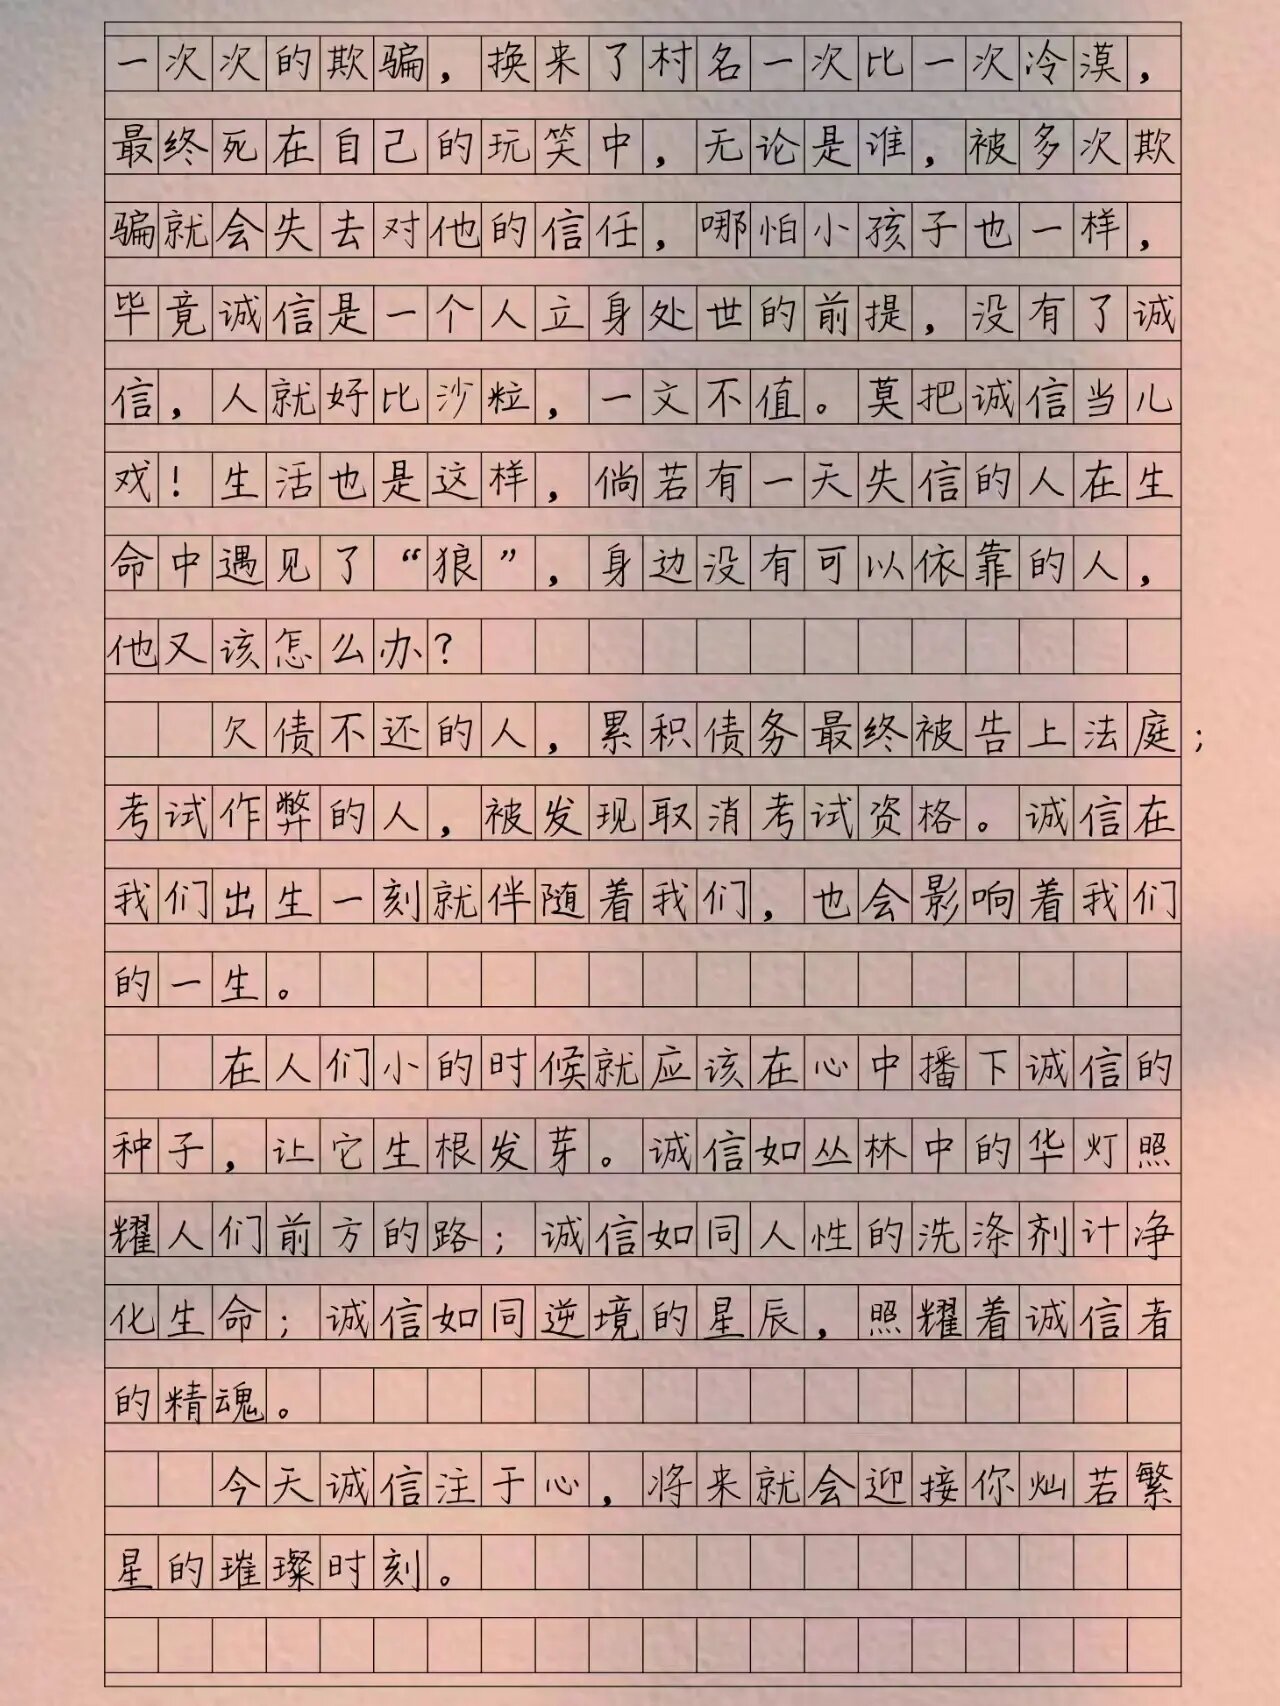 一次次的欺骗，换来了村名一次比一次冷漠，
最终死在自己的玩笑中，无论是谁，被多次欺
骗就会失去对他的信任，哪怕小孩子也一样，
毕竟诚信是一个人立身处世的前提，没有了诚
信，人就好比沙粒，一文不值。莫把诚信当儿
戏！生活也是这样，倘若有一天失信的人在生
命中遇见了“狼”，身边没有可以依靠的人，
他又该怎么办？
欠债不还的人，累积债务最终被告上法庭；
考试作弊的人，被发现取消考试资格。诚信在
我们出生一刻就伴随着我们，也会影响着我们
的一生。
在人们小的时候就应该在心中播下诚信的
种子，让它生根发芽。诚信如丛林中的华灯照
耀人们前方的路；诚信如同人性的洗涤剂计净
化生命；诚信如同逆境的星辰，照耀着诚信者
的精魂。
今天诚信注于心，将来就会迎接你灿若繁
星的璀璨时刻。